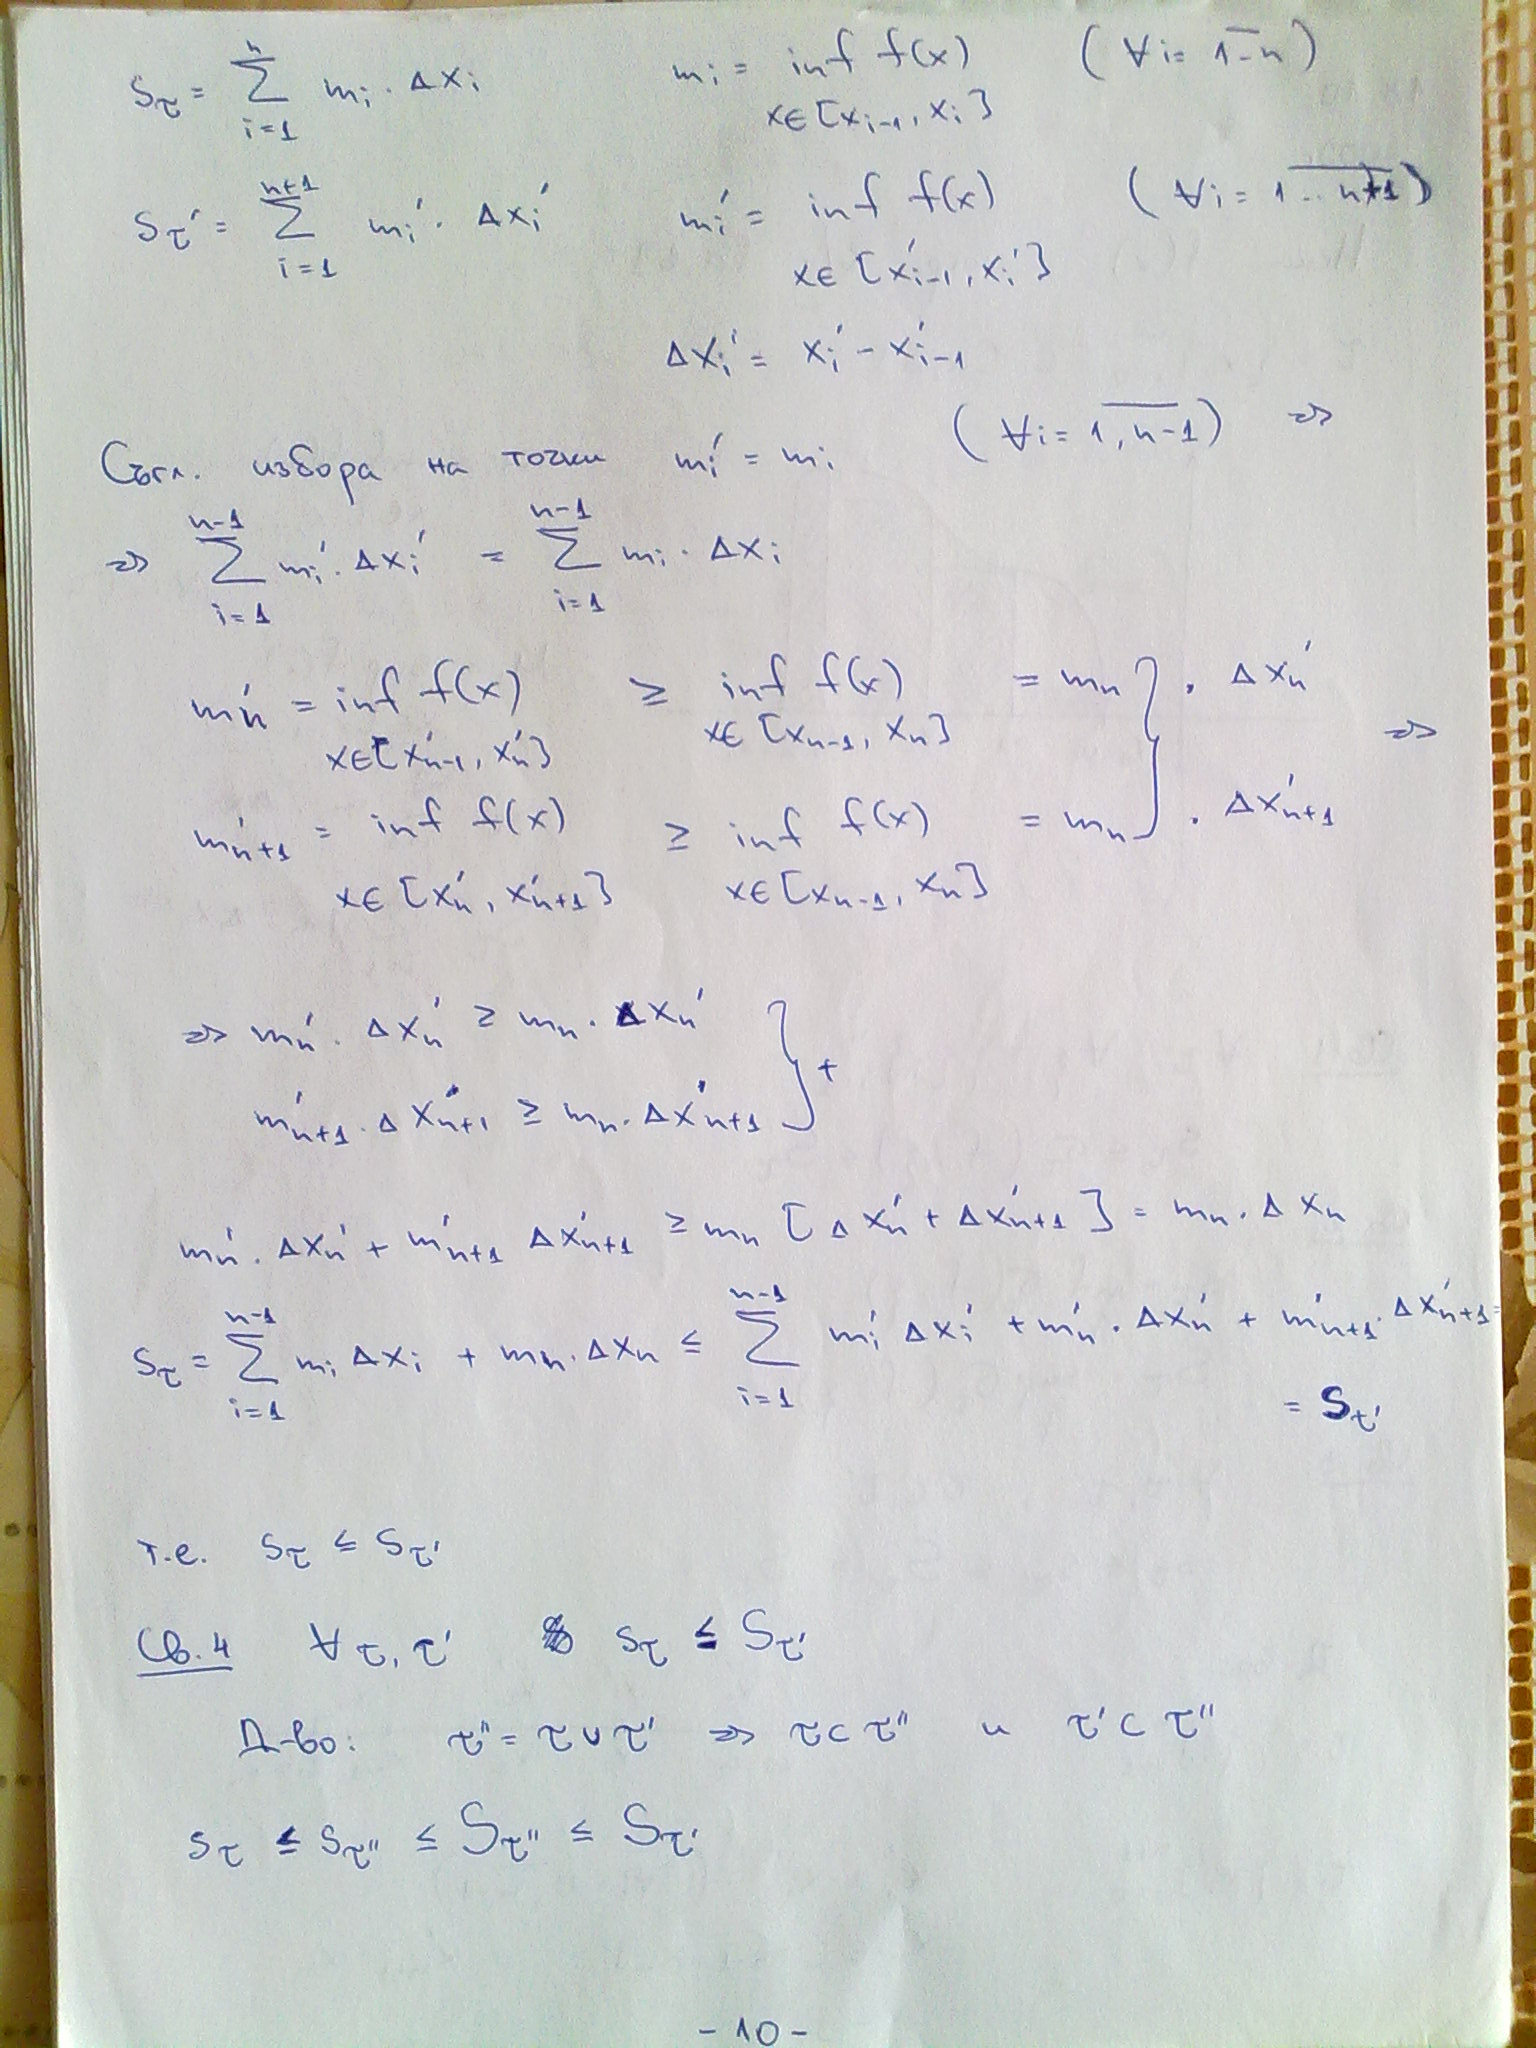 s_τ = ∑_{i=1}^{n} m_i · Δx_i   m_i = inf f(x) x∈[x_{i-1}, x_i]   (∀i = 1-n)
s_τ' = ∑_{i=1}^{n+1} m_i' · Δx_i'   m_i' = inf f(x) x∈[x'_{i-1}, x_i']   (∀i = 1...n+1)
Δx_i' = x_i' - x'_{i-1}
Съгл. избора на точки m_i' = m_i   (∀i = 1, n-1) ⇒
⇒ ∑_{i=1}^{n-1} m_i' · Δx_i' = ∑_{i=1}^{n-1} m_i · Δx_i
m_n' = inf f(x) x∈[x'_{n-1}, x'_n] ≥ inf f(x) x∈[x_{n-1}, x_n] = m_n } · Δx_n' ⇒
m'_{n+1} = inf f(x) x∈[x'_n, x'_{n+1}] ≥ inf f(x) x∈[x_{n-1}, x_n] = m_n } · Δx'_{n+1}
⇒ m_n' · Δx_n' ≥ m_n · Δx_n' } +
m'_{n+1} · Δx'_{n+1} ≥ m_n · Δx'_{n+1}
m_n' · Δx_n' + m'_{n+1} Δx'_{n+1} ≥ m_n [Δx_n' + Δx'_{n+1}] = m_n · Δx_n
s_τ = ∑_{i=1}^{n-1} m_i Δx_i + m_n · Δx_n ≤ ∑_{i=1}^{n-1} m_i' Δx_i' + m_n' · Δx_n' + m'_{n+1} · Δx'_{n+1} =
= s_{τ'}
т.е. s_τ ≤ s_{τ'}
Св. 4 ∀ τ, τ' s_τ ≤ S_{τ'}
Д-во: τ'' = τ ∪ τ' ⇒ τ ⊂ τ'' и τ' ⊂ τ''
s_τ ≤ s_{τ''} ≤ S_{τ''} ≤ S_{τ'}
- 10 -